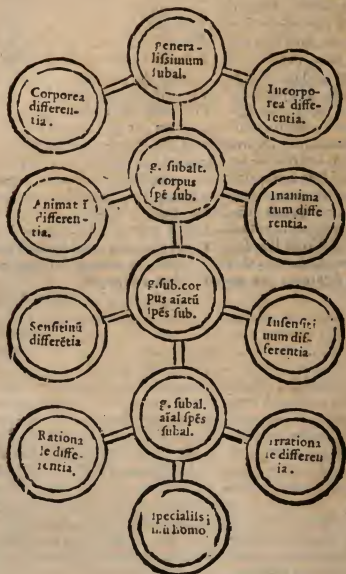 genera-
lissimum
subal.
Corporea
differen-
tia.
Incorpo
rea diffe
rentia.
g. subalt.
corpus
spē sub.
Animat ī
differen-
tia.
Inanima
tum diffe
rentia.
g.sub.cor
pus aīatū
spēs sub.
Sensitiuū
differētia
Insensiti
uum dif-
ferentia
g. subal.
aīal spēs
subal.
Rationa
le diffe-
rentia.
irrationa
le differen
ia.
specialissi
mū homo